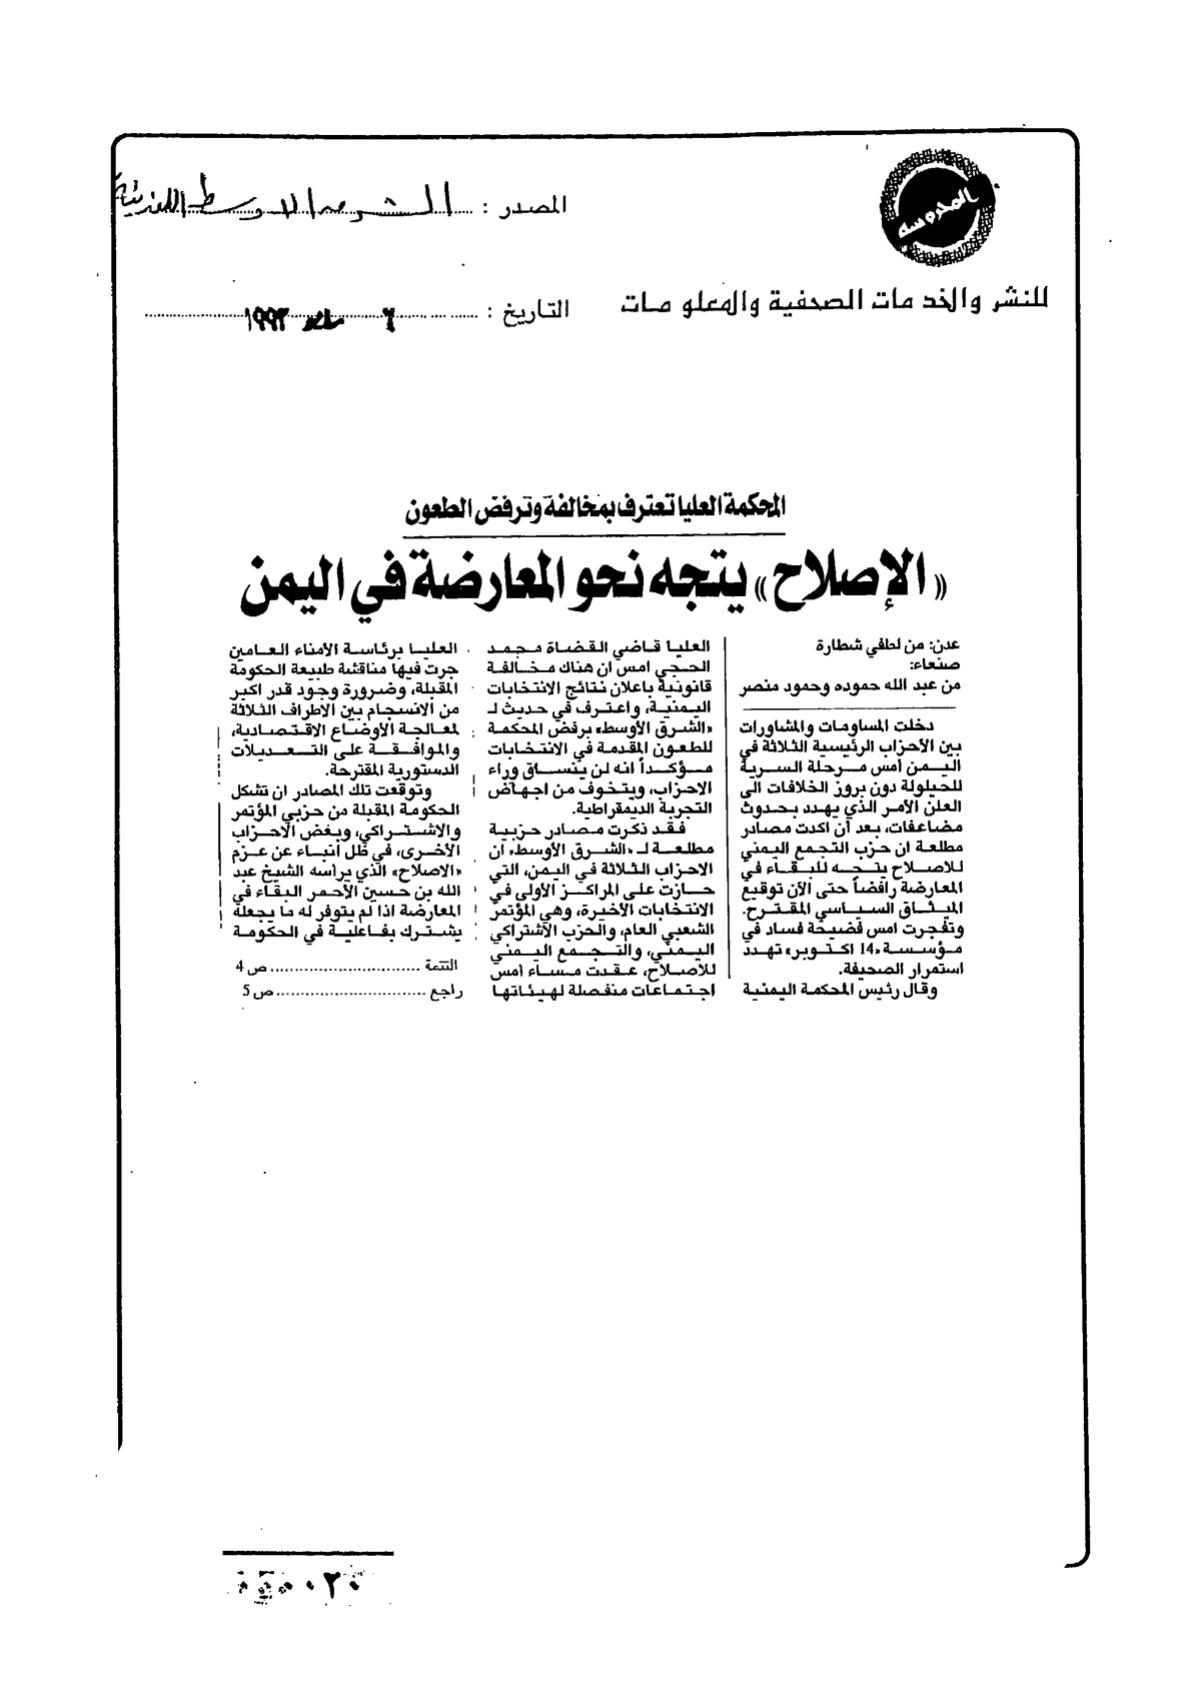 المحروسة
للنشر والخدمات الصحفية والمعلومات
المصدر : الشرق الاوسط اللندنية
التاريخ : ٦ مايو ١٩٩٣
المحكمة العليا تعترف بمخالفة وترفض الطعون
«الإصلاح» يتجه نحو المعارضة في اليمن
عدن: من لطفي شطارة
صنعاء:
من عبد الله حموده وحمود منصر
دخلت المساومات والمشاورات
بين الأحزاب الرئيسية الثلاثة في
اليمن أمس مرحلة السرية
للحيلولة دون بروز الخلافات الى
العلن الأمر الذي يهدد بحدوث
مضاعفات، بعد أن اكدت مصادر
مطلعة ان حزب التجمع اليمني
للاصلاح يتجه للبقاء في
المعارضة رافضاً حتى الآن توقيع
الميثاق السياسي المقترح.
وتفجرت امس فضيحة فساد في
مؤسسة «14 اكتوبر» تهدد
استمرار الصحيفة.
وقال رئيس المحكمة اليمنية
العليا قاضي القضاة محمد
الحجي امس ان هناك مخالفة
قانونية باعلان نتائج الانتخابات
اليمنية، واعترف في حديث لـ
«الشرق الأوسط» برفض المحكمة
للطعون المقدمة في الانتخابات
مؤكداً انه لن ينساق وراء
الاحزاب، ويتخوف من اجهاض
التجربة الديمقراطية.
فقد ذكرت مصادر حزبية
مطلعة لـ «الشرق الأوسط» أن
الاحزاب الثلاثة في اليمن، التي
حازت على المراكز الأولى في
الانتخابات الأخيرة، وهي المؤتمر
الشعبي العام، والحزب الاشتراكي
اليمني، والتجمع اليمني
للاصلاح، عقدت مساء امس
اجتماعات منفصلة لهيئاتها
العليا برئاسة الأمناء العامين
جرت فيها مناقشة طبيعة الحكومة
المقبلة، وضرورة وجود قدر اكبر
من الانسجام بين الاطراف الثلاثة
لمعالجة الأوضاع الاقتصادية،
والموافقة على التعديلات
الدستورية المقترحة.
وتوقعت تلك المصادر ان تشكل
الحكومة المقبلة من حزبي المؤتمر
والاشتراكي، وبعض الاحزاب
الأخرى، في ظل انباء عن عزم
«الاصلاح» الذي يرأسه الشيخ عبد
الله بن حسين الأحمر البقاء في
المعارضة اذا لم يتوفر له ما يجعله
يشترك بفاعلية في الحكومة
التتمة ........ ص 4
راجع ........ ص 5